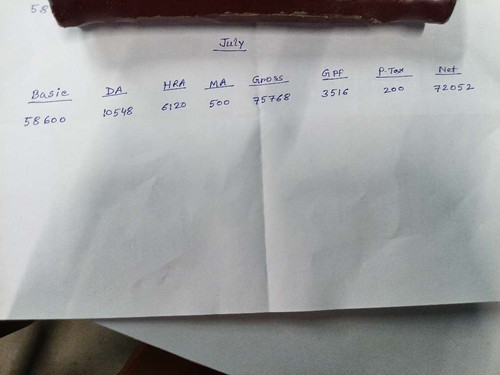 58
July
Basic DA HRA MA Gross GPF P.Tax Net
58600 10548 6120 500 75768 3516 200 72052